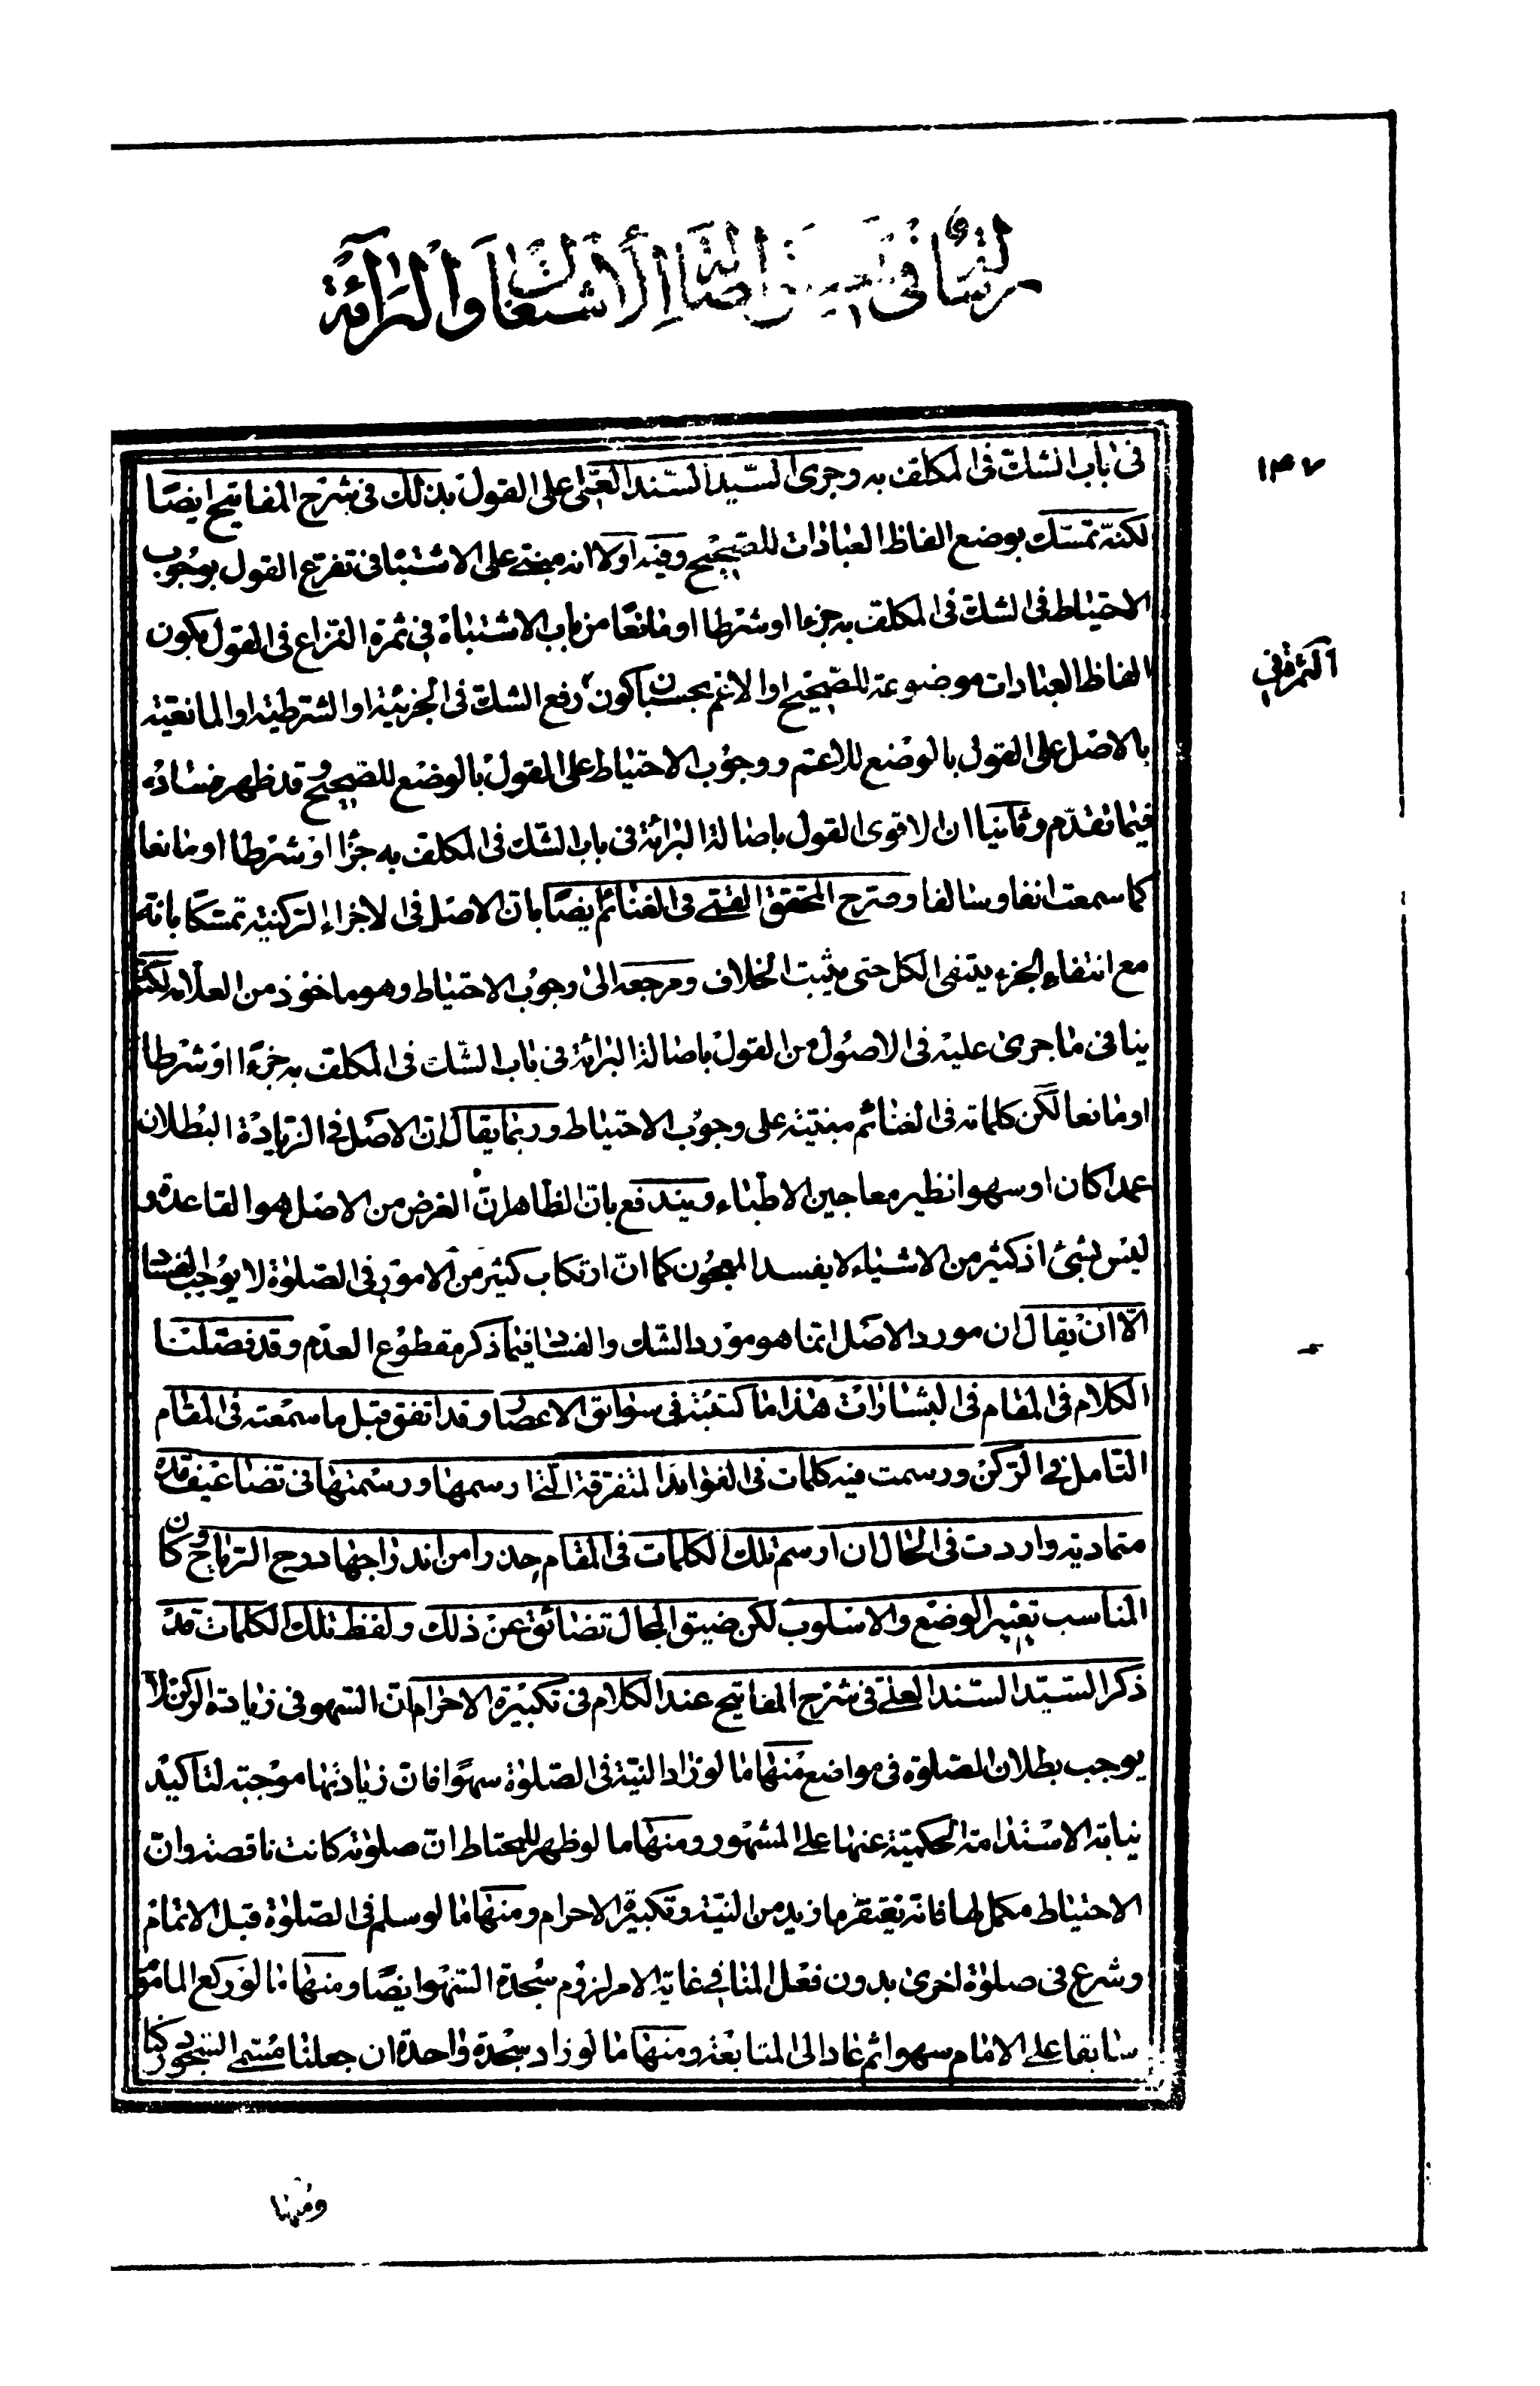 رسالة في اصالة الاشتغال والبرائة
١٤٧
في باب الشك في المكلف به وجرى السيد السند العلي على القول بذلك في شرح المفاتيح ايضا
لكنه تمسك بوضع الفاظ العبادات للصحيح وفيه اولا انه مبتنى على الاشتباه في تفرع القول بوجوب
الاحتياط في الشك في المكلف به جزءا او شرطا او مانعا من باب الاشتباه في ثمرة النزاع في القول بكون
الثمرة في
الفاظ العبادات موضوعة للصحيح او الاعم بحسبان كون رفع الشك في الجزئية او الشرطية او المانعية
بالاصل على القول بالوضع للاعم ووجوب الاحتياط على القول بالوضع للصحيح وقد ظهر فساده
فيما تقدم وثانيا ان الاقوى القول باصالة البرائة في باب الشك في المكلف به جزءا او شرطا او مانعا
كما سمعت انفا وسالفا وصرح المحقق القمي في الغنائم ايضا بان الاصل في الاجزاء الركنية تمسكا بانه
مع انتفاء الجزء ينتفى الكل حتى يثبت الخلاف ومرجعه الى وجوب الاحتياط وهو ماخوذ من العلامة لكنه
ينافي ما جرى عليه في الاصول من القول باصالة البرائة في باب الشك في المكلف به جزءا او شرطا
او مانعا لكن كلماته في الغنائم مبتنية على وجوب الاحتياط وربما يقال ان الاصل في الزيادة البطلان
عمدا كان او سهوا نظير معاجين الاطباء ويندفع بان الظاهر ان الغرض من الاصل هو القاعدة و
ليس بشئ اذ كثير من الاشياء لا يفسد المعجون كما ان ارتكاب كثير من الامور في الصلوة لا يوجب الفساد
الا ان يقال ان مورد الاصل انما هو مورد الشك والفساد فيما ذكر مقطوع العدم وقد فصلنا
الكلام في المقام في البشارات هذا ما كتبته في سوابق الاعصار وقد اتفق قبل ما سمعته في المقام
التامل في الركن ورسمت فيه كلمات في الفوايد المتفرقة التي ارسمها ورسمتها في تضاعيف مدة
متمادية واردت في الحال ان ارسم تلك الكلمات في المقام حذرا من اندراجها درج الرياح وكان
المناسب تغيير الوضع والاسلوب لكن ضيق المجال تضائق عن ذلك ولفظ تلك الكلمات قد
ذكر السيد السند العلي في شرح المفاتيح عند الكلام في تكبيرة الاحرام ان السهو في زيادة الركن لا
يوجب بطلان الصلوة في مواضع منها ما لو زاد النية في الصلوة سهوا فان زيادتها موجبة لتاكيد
نيابة الاستدامة الحكمية عنها على المشهور ومنها ما لو ظهر للمحتاط ان صلوته كانت ناقصة وان
الاحتياط مكمل لها فانه يغتفر ما زيد من النية وتكبيرة الاحرام ومنها ما لو سلم في الصلوة قبل الاتمام
وشرع في صلوة اخرى بدون فعل المنافي غاية الامر لزوم سجدة السهو ايضا ومنها ما لو ركع الماموم
سابقا على الامام سهوا ثم عاد الى المتابعة ومنها ما لو زاد سجدة واحدة ان جعلنا مسمى السجود ركنا
ومنها